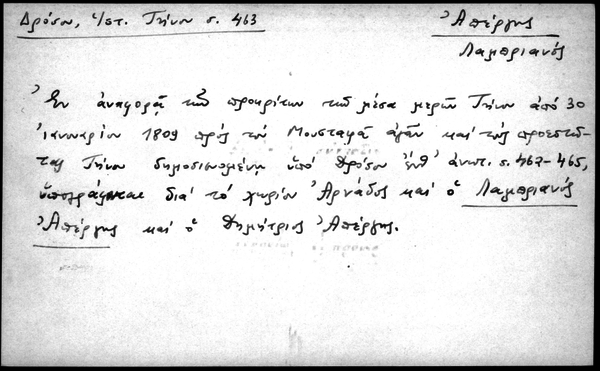 Δρόσου, Ἱστ. Τήνου σ. 463
Ἀπέργης
Λαμπριανός
Ἐν ἀναφορᾷ τῶν προκρίτων τῶν μέσα μερῶν Τήνου ἀπό 30
Ἰαννουαρίου 1809 πρός τόν Μουσταφᾶ ἀγᾶν καί τούς προεστῶ-
τας Τήνου δημοσιευομένῃ ὑπό Δρόσου ἔνθ' ἀνωτ. σ. 462-465,
ὑπογράφεται διά τό χωρίον Ἀρνάδος καί ὁ Λαμπριανός
Ἀπέργης καί ὁ Δημήτριος Ἀπέργης.